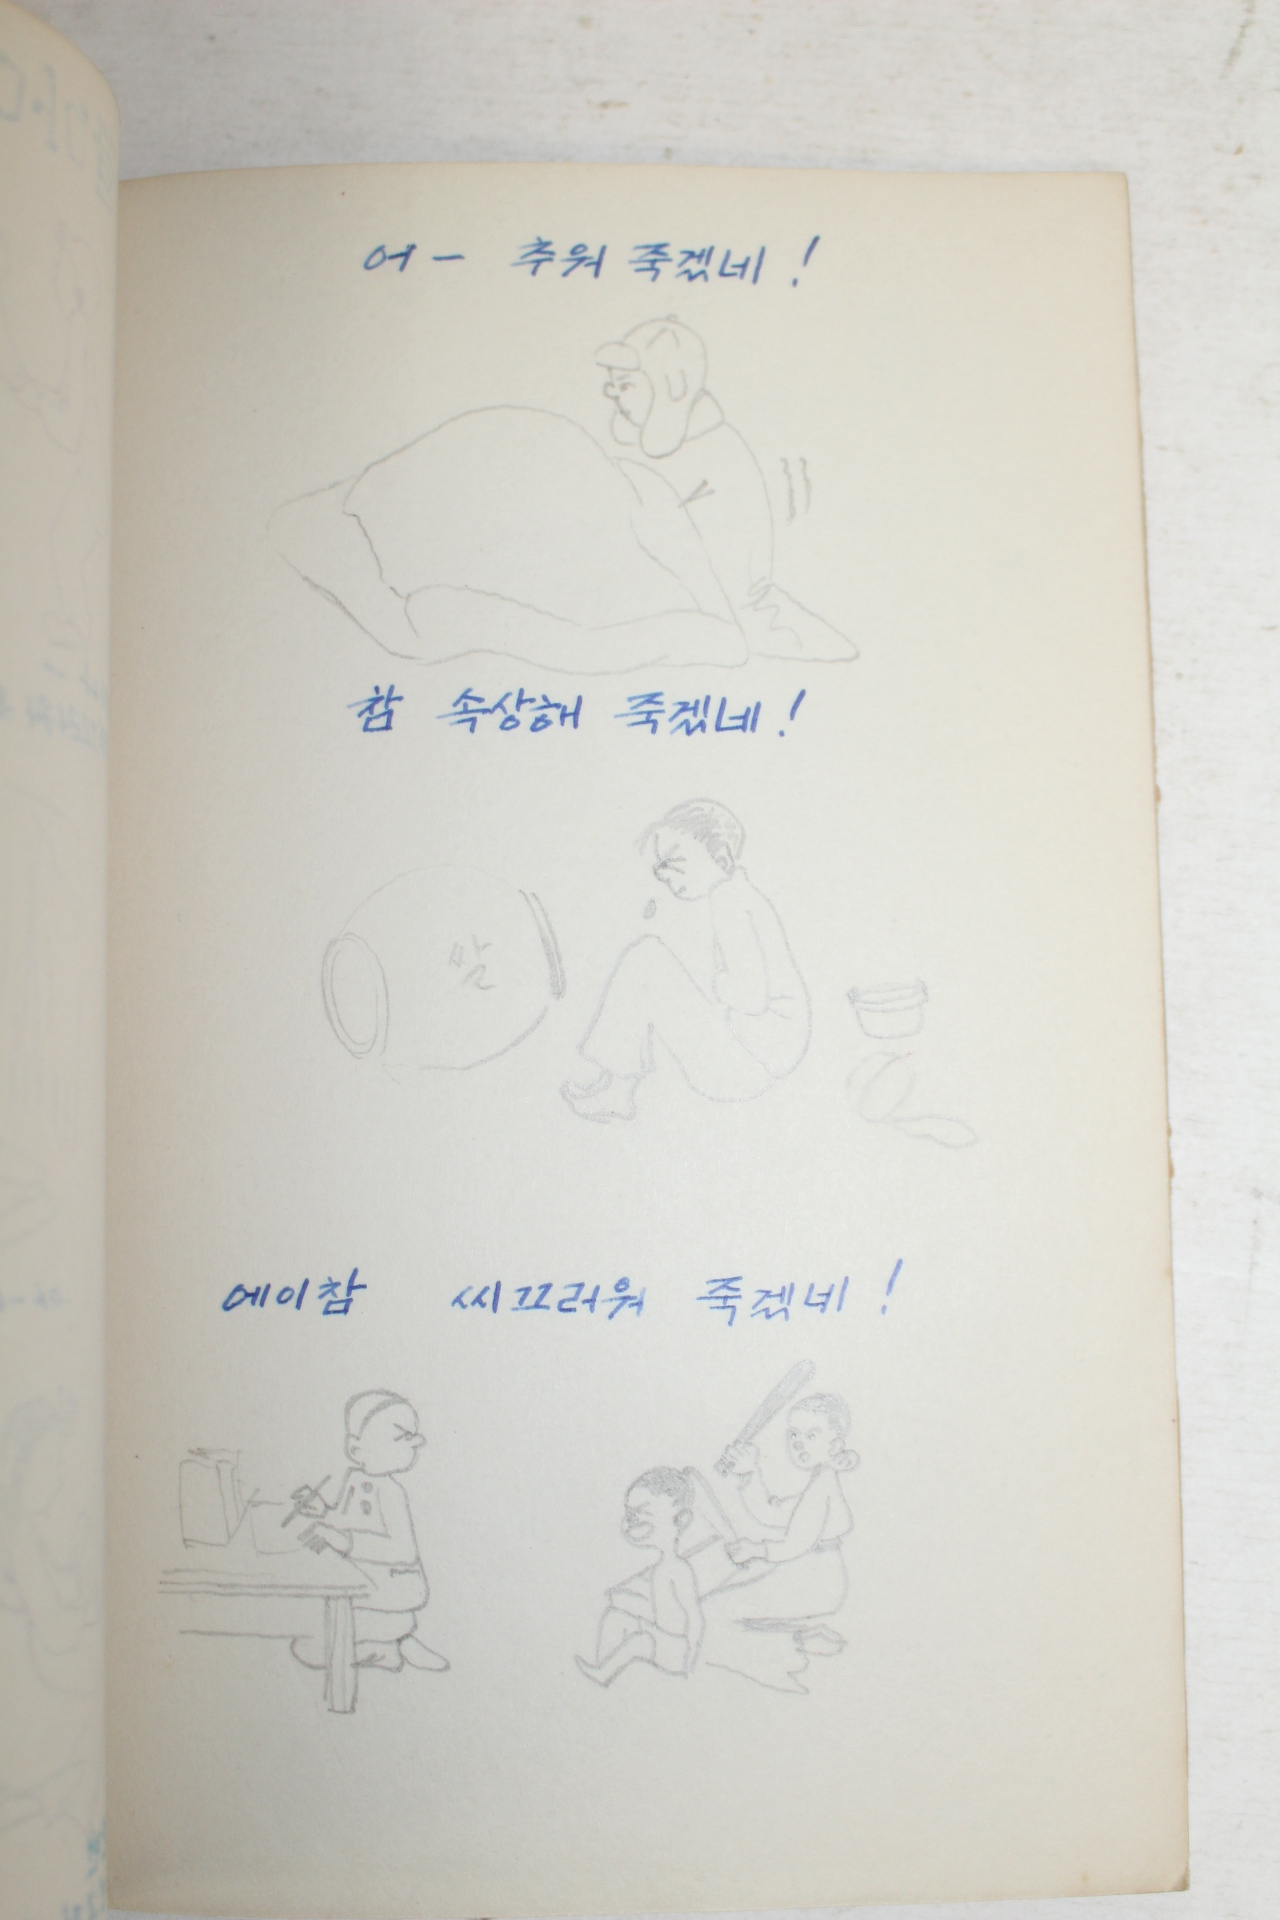 어- 추워 죽겠네!
참 속상해 죽겠네!
쌀
에이참 씨끄러워 죽겠네!